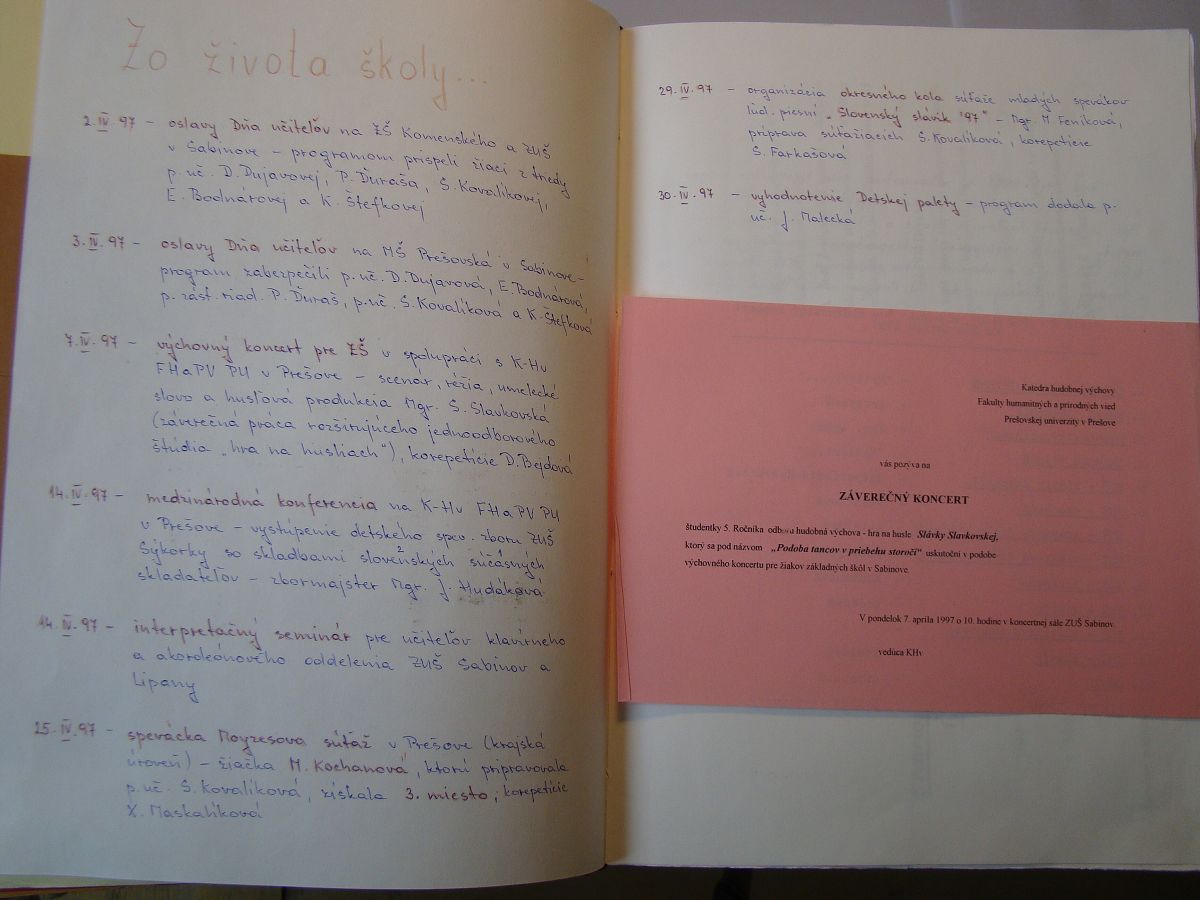 Zo života školy...
2.IV.97 – oslavy Dňa učiteľov na ZŠ Komenského a ZUŠ
v Sabinove – programom prispeli žiaci z triedy
p.uč. D.Dujavovej, P.Ďuraša, S.Kovalíkovej,
E.Bodnárovej a K.Štefkovej
3.IV.97 – oslavy Dňa učiteľov na MŠ Prešovská v Sabinove–
program zabezpečili p.uč. D.Dujavová, E.Bodnárová,
p.zást.riad. P.Ďuraš, p.uč. S.Kovalíková a K.Štefková
7.IV.97 – výchovný koncert pre ZŠ v spolupráci s K-Hv
FHaPV PU v Prešove – scenár, réžia, umelecké
slovo a husľová produkcia Mgr. S.Slavkovská
(záverečná práca rozširujúceho jednoodborového
štúdia „hra na husliach"), korepetície D.Bejdová
14.IV.97 – medzinárodná konferencia na K-Hv FHaPV PU
v Prešove – vystúpenie detského spev. zboru ZUŠ
Sýkorky so skladbami slovenských súčasných
skladateľov – zbormajster Mgr. J. Hudáková
14.IV.97 – interpretačný seminár pre učiteľov klavírneho
a akordeónového oddelenia ZUŠ Sabinov a
Lipany
25.IV.97 – spevácka Moyzesova súťaž v Prešove (krajská
úroveň) – žiačka M.Kochanová, ktorú pripravovala
p.uč. S.Kovalíková, získala 3. miesto, korepetície
X. Maskalíková
29.IV.97 – organizácia okresného kola súťaže mladých spevákov
ľud. piesní „Slovenský slávik '97" – Mgr. M. Feníková,
príprava súťažiacich S.Kovalíková, korepetície
S. Farkašová
30.IV.97 – vyhodnotenie Detskej palety – program dodala p.
uč. J. Malecká
Katedra hudobnej výchovy
Fakulty humanitných a prírodných vied
Prešovskej univerzity v Prešove
vás pozýva na
ZÁVEREČNÝ KONCERT
študentky 5. Ročníka odboru hudobná výchova - hra na husle Slávky Slavkovskej,
ktorý sa pod názvom „Podoba tancov v priebehu storočí" uskutoční v podobe
výchovného koncertu pre žiakov základných škôl v Sabinove.
V pondelok 7. apríla 1997 o 10. hodine v koncertnej sále ZUŠ Sabinov.
vedúca KHv